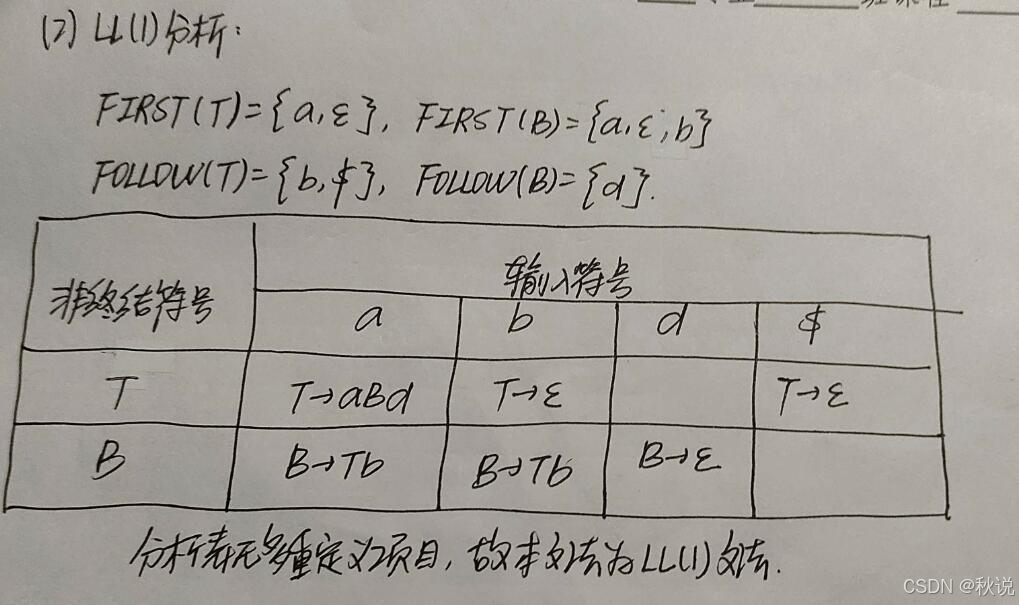 班课程
(2) LL(1)分析:
FIRST(T)={a,ε}, FIRST(B)={a,ε,b}
FOLLOW(T)={b,$}, FOLLOW(B)={d}.
非终结符号 输入符号
a b d $
T T→aBd T→ε T→ε
B B→Tb B→Tb B→ε
分析表无多重定义项目,故本文法为LL(1)文法.
CSDN @秋说